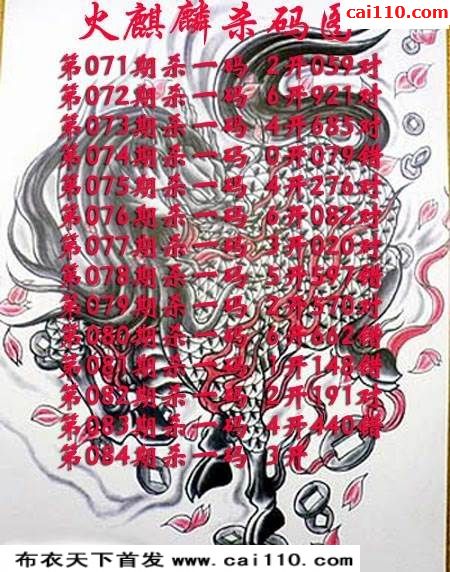 cai110.com
火麒麟杀码图
第071期杀一码 2开059对
第072期杀一码 6开921对
第073期杀一码 4开685对
第074期杀一码 0开079错
第075期杀一码 4开276对
第076期杀一码 6开082对
第077期杀一码 3开020对
第078期杀一码 5开597错
第079期杀一码 2开570对
第080期杀一码 6开662错
第081期杀一码 1开148错
第082期杀一码 2开191对
第083期杀一码 4开440错
第084期杀一码 3开
布衣天下首发 www.cai110.com